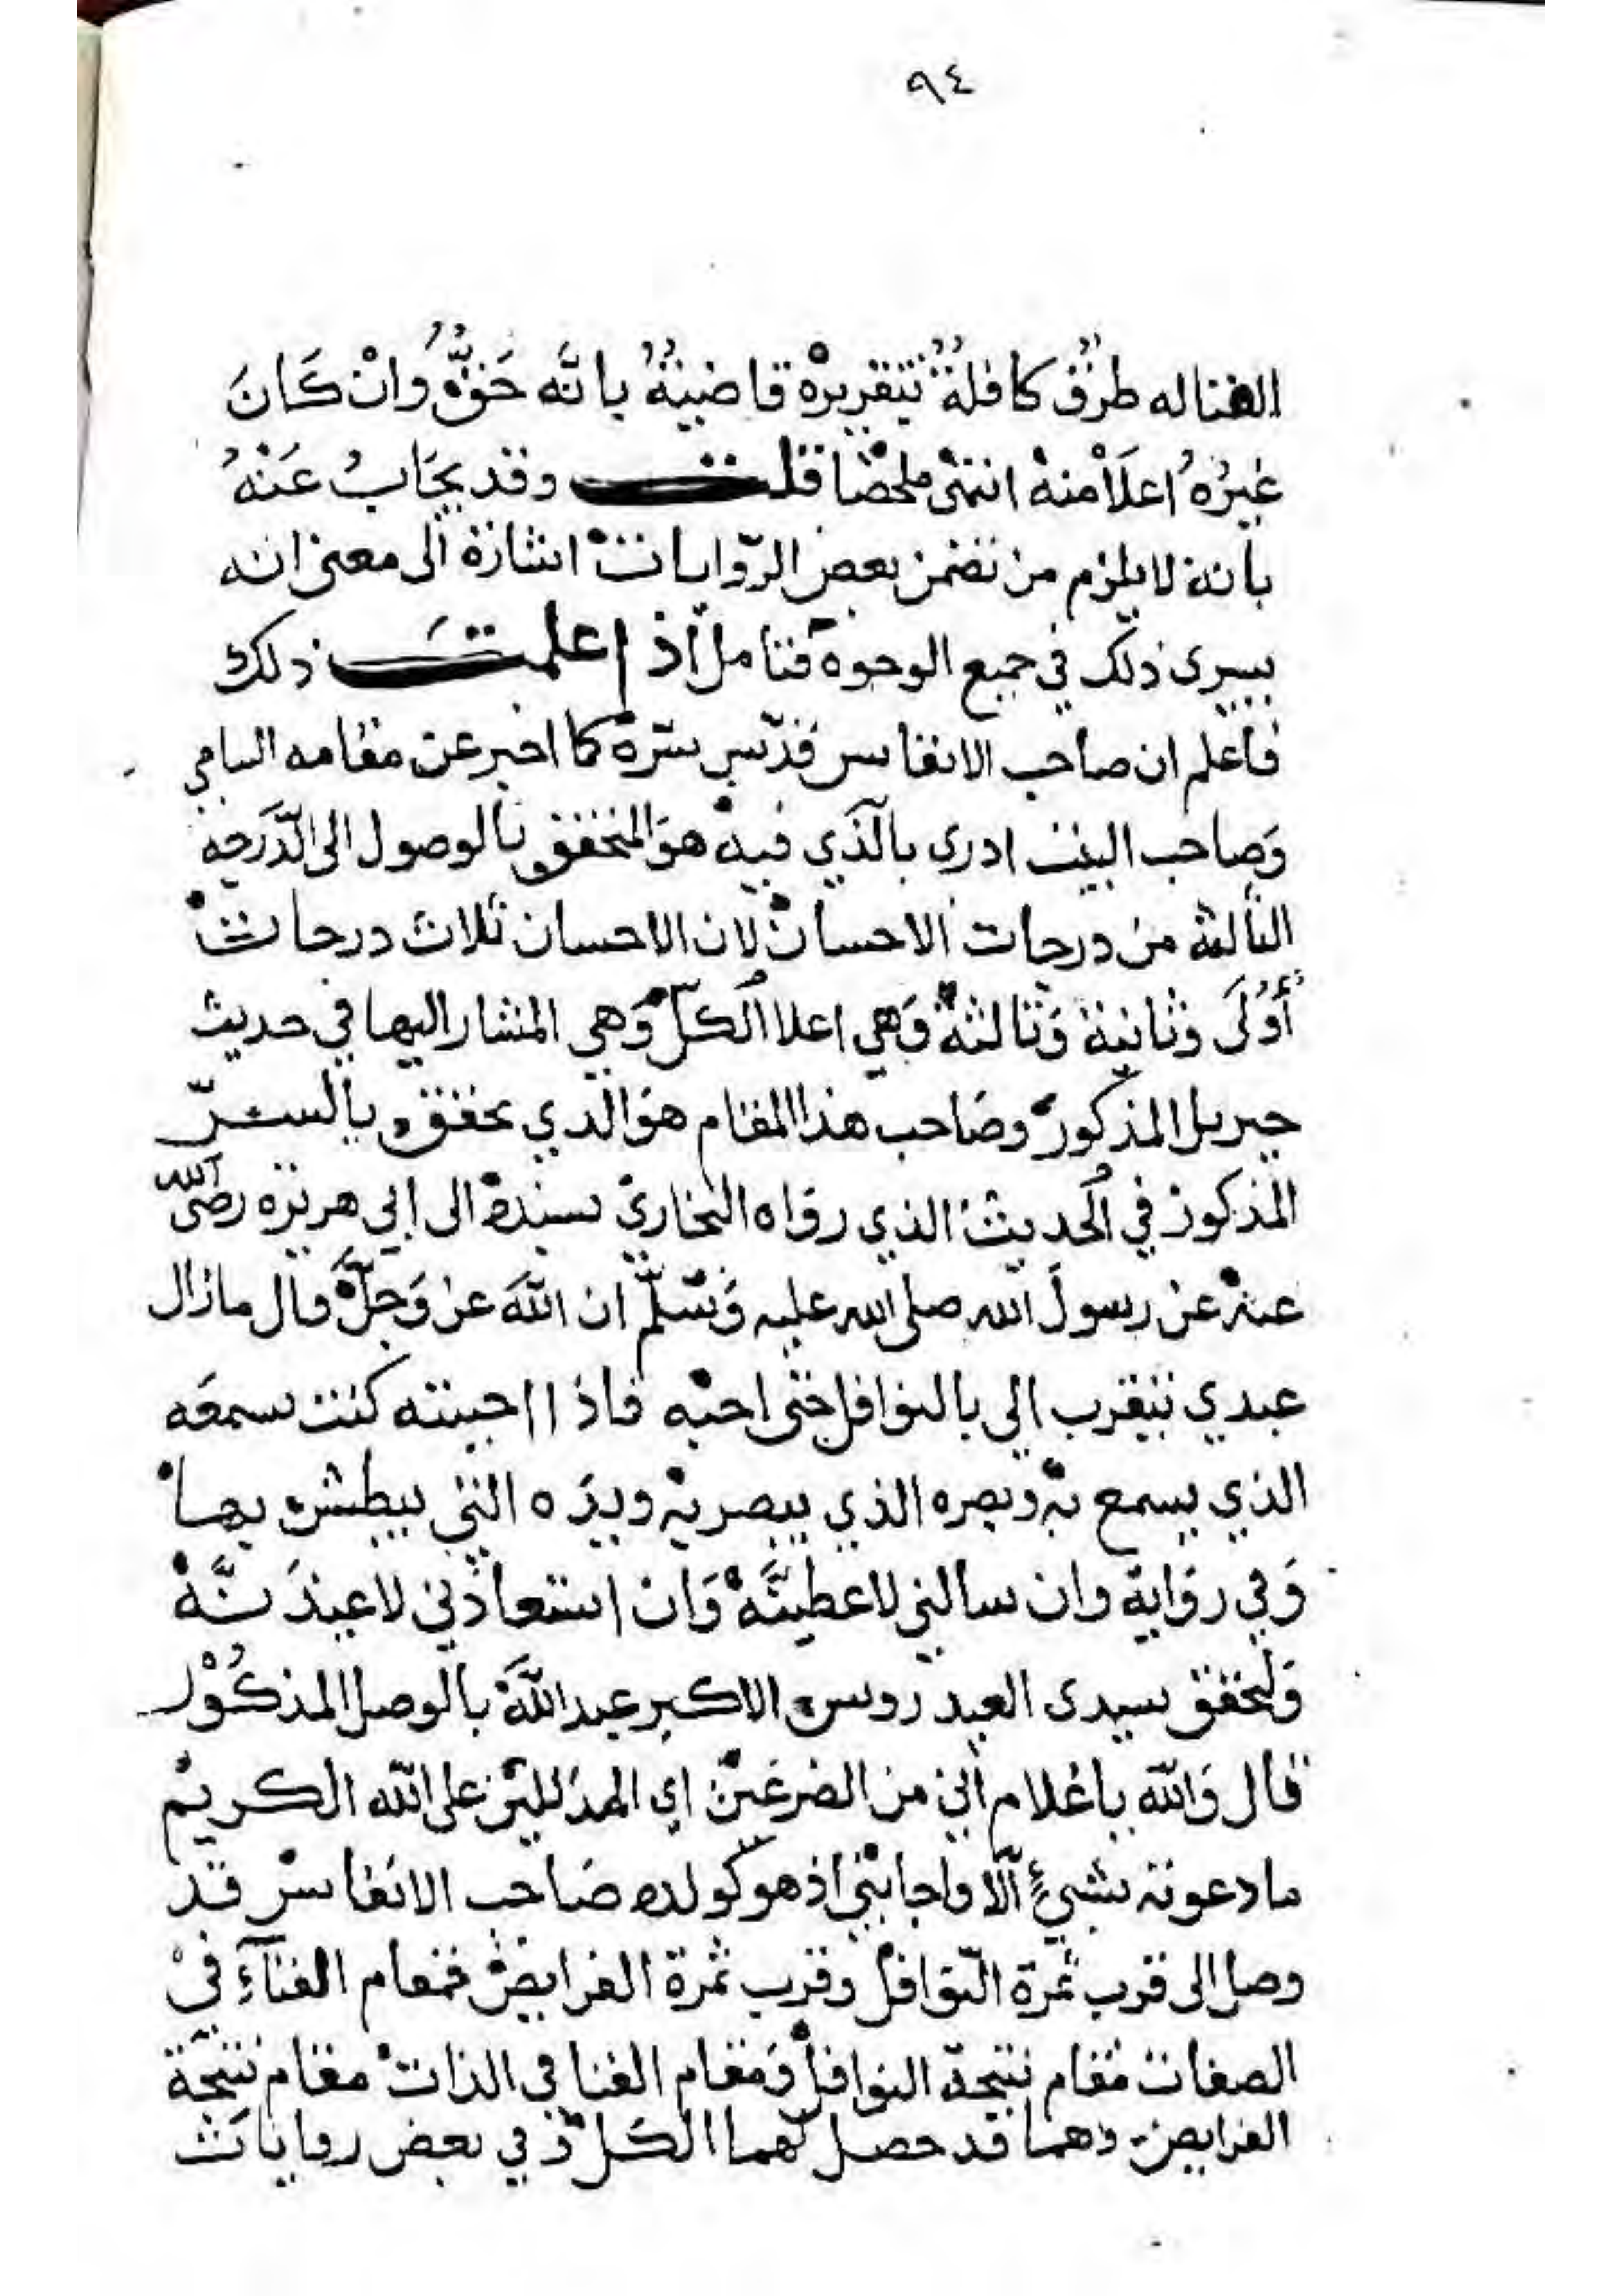 ٩٤
الفنا له طرق كافلة بتقريره قاضية بانه حَقٌّ وانْ كَانَ
غيرُهُ اعلَا منه انتهى ملخصًا قلت وقد يجَابُ عَنْهُ
بانه لا يلزم من تضمن بعض الرّوايات اشارة الى معنى انه
يسرى ذلك في جميع الوجوه فتامل اذا علمت ذلك
فاعلم ان صاحب الانفاس قدّس سرّه كما اخبر عن مقامه السامي
وَصاحب البيت ادرى بالّذي فيه هوَ المتحقق بالوصول الى الدّرَجة
الثالثة من درجات الاحسان لان الاحسان ثلاث درجات
أُوْلَى وثانية وَثالثة وَهي اعلا الكلّ وَهي المشار اليها في حديث
جبريل المذكور وصَاحب هذا المقام هوَ الذي تحقق بالسرّ
المذكور في الحديث الذي روَاه البخاريّ بسنده الى ابي هريرَه رضيّ الله
عنه عن رسول الله صلى الله عليه وَسَلّم ان اللهَ عز وَجلَّ قال مازال
عبدي يتقرب الي بالنوافل حتى احبه فاذا احببته كنت سمعَه
الذي يسمع به وبصره الذي يبصر به ويدَه التي يبطش بها
وَفي روَاية وان سالني لاعطينَّه وَان استعاذني لاعيذَنَّهُ
وَلتحقق سيدى العيدروس الاكبر عبد اللهَ بالوصل المذكُوْر
قال وَالله يا غلام اني من الضرغَين اي المدَللين على الله الكريم
ما دعوته بشيءٍ الّا واجابني اذ هو كولده صَاحب الانفاس قد
وصل الى قرب ثمرة النّوافل وقرب ثمرة الفرايض فمقام الفنآءِ في
الصفات مقام نتيجة النوافل وَمقام الفنا في الذات مقام نتيجَة
الفرايض وهما قد حصل لهما الكلّ وَفي بعض روايات